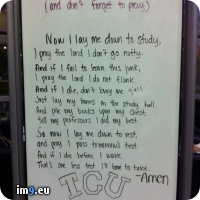 (and don't forget to pray)
Now I lay me down to study,
I pray the Lord I don't go nutty.
And if I fail to learn this junk,
I pray the Lord I do not flunk.
And if I die, don't bury me at all
Just lay my bones in the study hall,
And pile my books upon my chest,
tell my professors I did my best.
So now I lay me down to rest,
and pray I pass tomorrow's test.
And if I die before I wake,
That's one less test I'll have to take.
-Amen
TCU
im9.eu